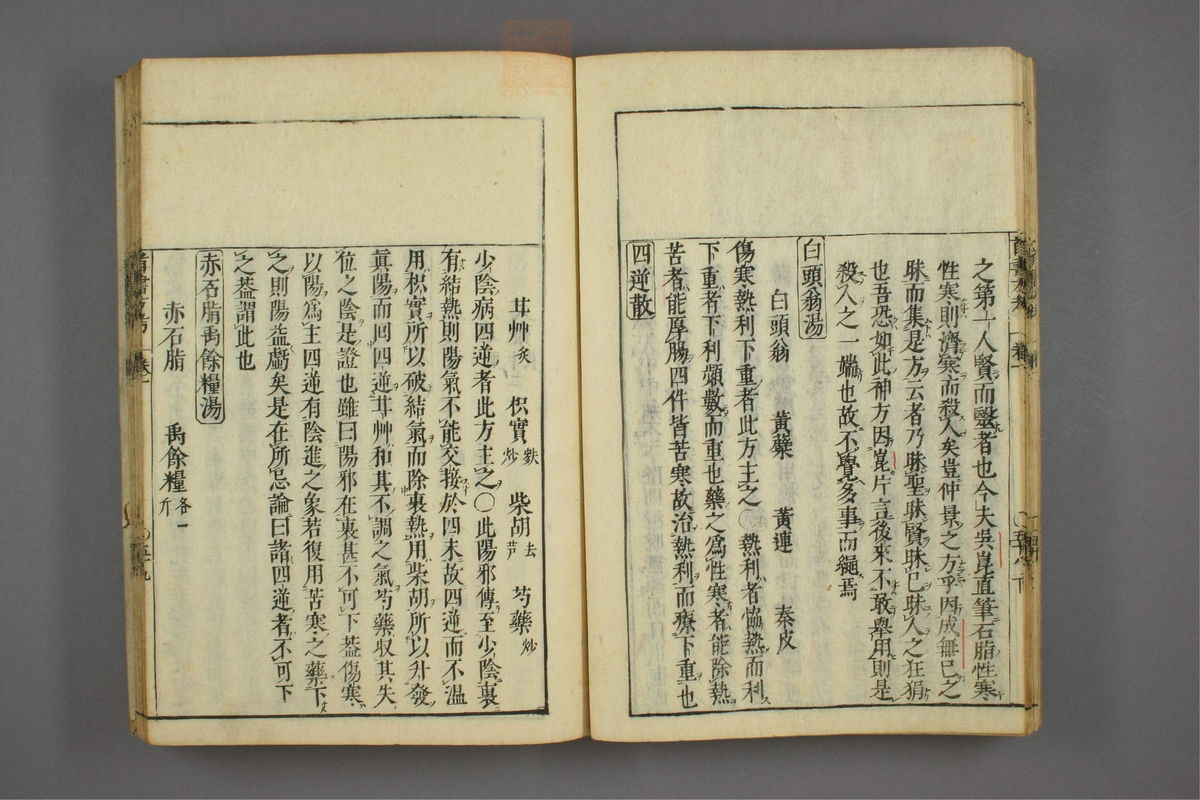 之第一人賢而毉者也今夫吳崑直筆石脂性寒
性寒則濟寒而殺人矣豈仲景之方乎因成無已之
昧而集是方云者乃昧聖昧賢昧已昧人之狂狷
也吾恐如此神方因崑片言後來不敢舉用則是
殺人之一端也故不覺多事而繩焉
白頭翁湯
白頭翁 黃蘗 黃連 秦皮
傷寒熱利下重者此方主之〇熱利者恊熱而利
下重者下利頻數而重也藥之爲性寒者能除熱
苦者能厚腸四件皆苦寒故治熱利而療下重也
四逆散
甘艸炙 枳實麩炒 柴胡去芦 芍藥炒
少陰病四逆者此方主之〇此陽邪傳至少陰裏
有結熱則陽氣不能交接於四末故四逆而不溫
用枳實所以破結氣而除裏熱用柴胡所以升發
眞陽而回四逆甘艸和其不調之氣芍藥収其失
位之陰是證也雖曰陽邪在裏甚不可下葢傷寒
以陽爲主四逆有陰進之象若復用苦寒之藥下
之則陽益虧矣是在所忌論曰諸四逆者不可下
之葢謂此也
赤石脂禹餘糧湯
赤石脂 禹餘糧各一斤